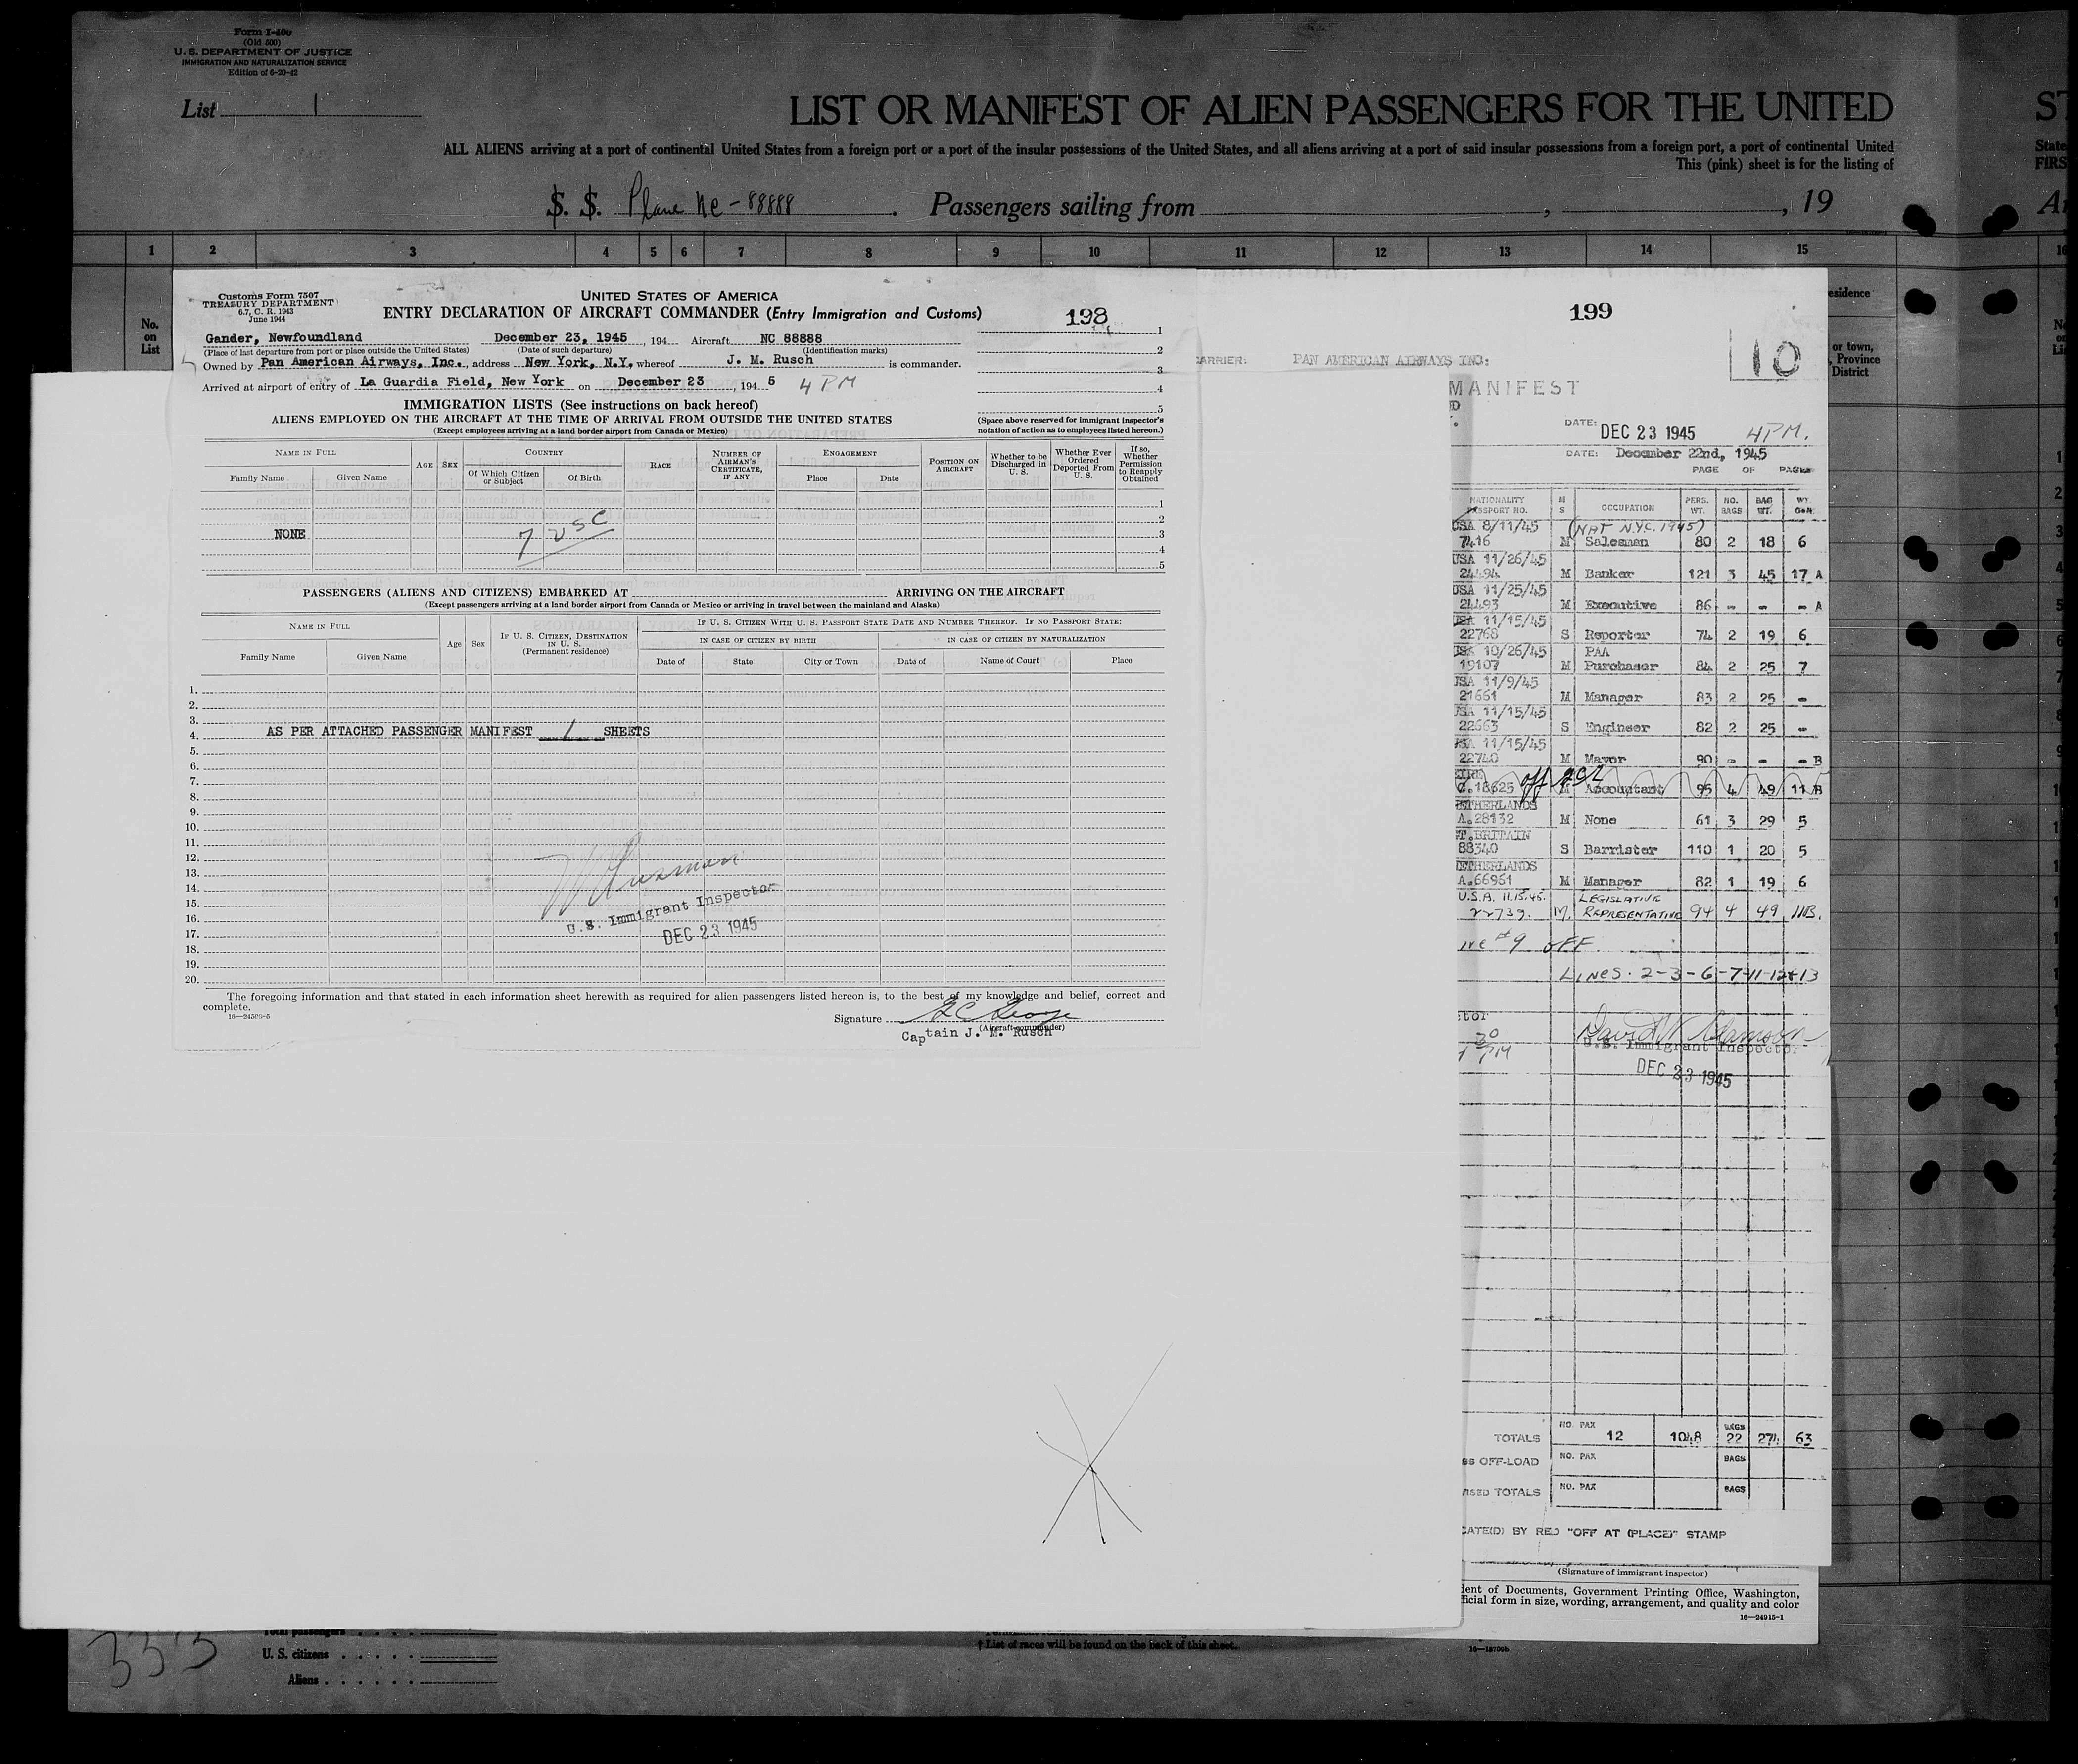 Form I-400
(Old 500)
U. S. DEPARTMENT OF JUSTICE
IMMIGRATION AND NATURALIZATION SERVICE
Edition of 6-20-42
List 1
LIST OR MANIFEST OF ALIEN PASSENGERS FOR THE UNITED ST
ALL ALIENS arriving at a port of continental United States from a foreign port or a port of the insular possessions of the United States, and all aliens arriving at a port of said insular possessions from a foreign port, a port of continental United State
This (pink) sheet is for the listing of FIRS
S. S. Plane NC-88888. Passengers sailing from , , 19
1 2 3 4 5 6 7 8 9 10 11 12 13 14 15 16
No. on List
esidence
or town,
, Province
District
Customs Form 7507
TREASURY DEPARTMENT
6.7, C. R. 1943
June 1944
UNITED STATES OF AMERICA
ENTRY DECLARATION OF AIRCRAFT COMMANDER (Entry Immigration and Customs)
198
Gander, Newfoundland December 23, 1945, 194 Aircraft NC 88888
(Place of last departure from port or place outside the United States) (Date of such departure) (Identification marks)
Owned by Pan American Airways, Inc., address New York, N.Y. whereof J. M. Rusch is commander.
Arrived at airport of entry of La Guardia Field, New York on December 23, 194 5 4 PM
1
2
3
4
5
IMMIGRATION LISTS (See instructions on back hereof)
ALIENS EMPLOYED ON THE AIRCRAFT AT THE TIME OF ARRIVAL FROM OUTSIDE THE UNITED STATES
(Except employees arriving at a land border airport from Canada or Mexico)
(Space above reserved for immigrant inspector's notation of action as to employees listed hereon.)
NAME IN FULL
Family Name Given Name
AGE SEX
COUNTRY
Of Which Citizen or Subject Of Birth
RACE
NUMBER OF AIRMAN'S CERTIFICATE, IF ANY
ENGAGEMENT
Place Date
POSITION ON AIRCRAFT
Whether to be Discharged in U. S.
Whether Ever Ordered Deported From U. S.
If so, Whether Permission to Reapply Obtained
1
2
3
4
5
NONE 7 USC
PASSENGERS (ALIENS AND CITIZENS) EMBARKED AT ARRIVING ON THE AIRCRAFT
(Except passengers arriving at a land border airport from Canada or Mexico or arriving in travel between the mainland and Alaska)
NAME IN FULL
Family Name Given Name
Age Sex
IF U. S. CITIZEN, DESTINATION IN U. S.
(Permanent residence)
IF U. S. CITIZEN WITH U. S. PASSPORT STATE DATE AND NUMBER THEREOF. IF NO PASSPORT STATE:
IN CASE OF CITIZEN BY BIRTH IN CASE OF CITIZEN BY NATURALIZATION
Date of State City or Town Date of Name of Court Place
1.
2.
3.
4. AS PER ATTACHED PASSENGER MANIFEST 1 SHEETS
5.
6.
7.
8.
9.
10.
11.
12.
13.
14.
15.
16.
17.
18.
19.
20.
U. S. Immigrant Inspector
DEC 23 1945
The foregoing information and that stated in each information sheet herewith as required for alien passengers listed hereon is, to the best of my knowledge and belief, correct and
complete.
16—24509-5
Signature
(Aircraft commander)
Captain J. M. Rusch
199
ARRIER: PAN AMERICAN AIRWAYS INC:
10
MANIFEST
DATE: DEC 23 1945 4 P.M.
DATE: December 22nd, 1945
PAGE OF PAGES
NATIONALITY PASSPORT NO. M S OCCUPATION PERS. WT. NO. BAGS BAG WT.
USA 8/11/45 (NAT N.Y.C. 1945)
7416 M Salesman 80 2 18 6
USA 11/26/45
24494 M Banker 121 3 45 17 A
USA 11/25/45
24493 M Executive 86 - - - A
USA 11/15/45
22768 S Reporter 74 2 19 6
USA 10/26/45 PAA
19107 M Purchaser 84 2 25 7
USA 11/9/45
21661 M Manager 83 2 25 -
USA 11/15/45
22663 S Engineer 82 2 25 -
USA 11/15/45
22740 M Mayor 90 - - - B
EIRE off
C.18625 M Accountant 95 4 49 11 B
ETHERLANDS
A.28132 M None 61 3 29 5
T.BRITAIN
88340 S Barrister 110 1 20 5
ETHERLANDS
A.66961 M Manager 82 1 19 6
U.S.A. 11.15.45. LEGISLATIVE
22739. M. REPRESENTATIVE 94 4 49 11B.
#9 OFF.
LINES. 2-3-6-7-11-12+13
tor
30
PM
U.S. Immigrant Inspector
DEC 23 1945
TOTALS NO. PAX 12 1048 BAGS 22 274 63
SS OFF-LOAD NO. PAX BAGS
ISED TOTALS NO. PAX BAGS
CATE(D) BY RED "OFF AT (PLACE)" STAMP
(Signature of immigrant inspector)
ent of Documents, Government Printing Office, Washington,
ficial form in size, wording, arrangement, and quality and color
16—24915-1
333
Total passengers
U. S. citizens
Aliens
† List of races will be found on the back of this sheet.